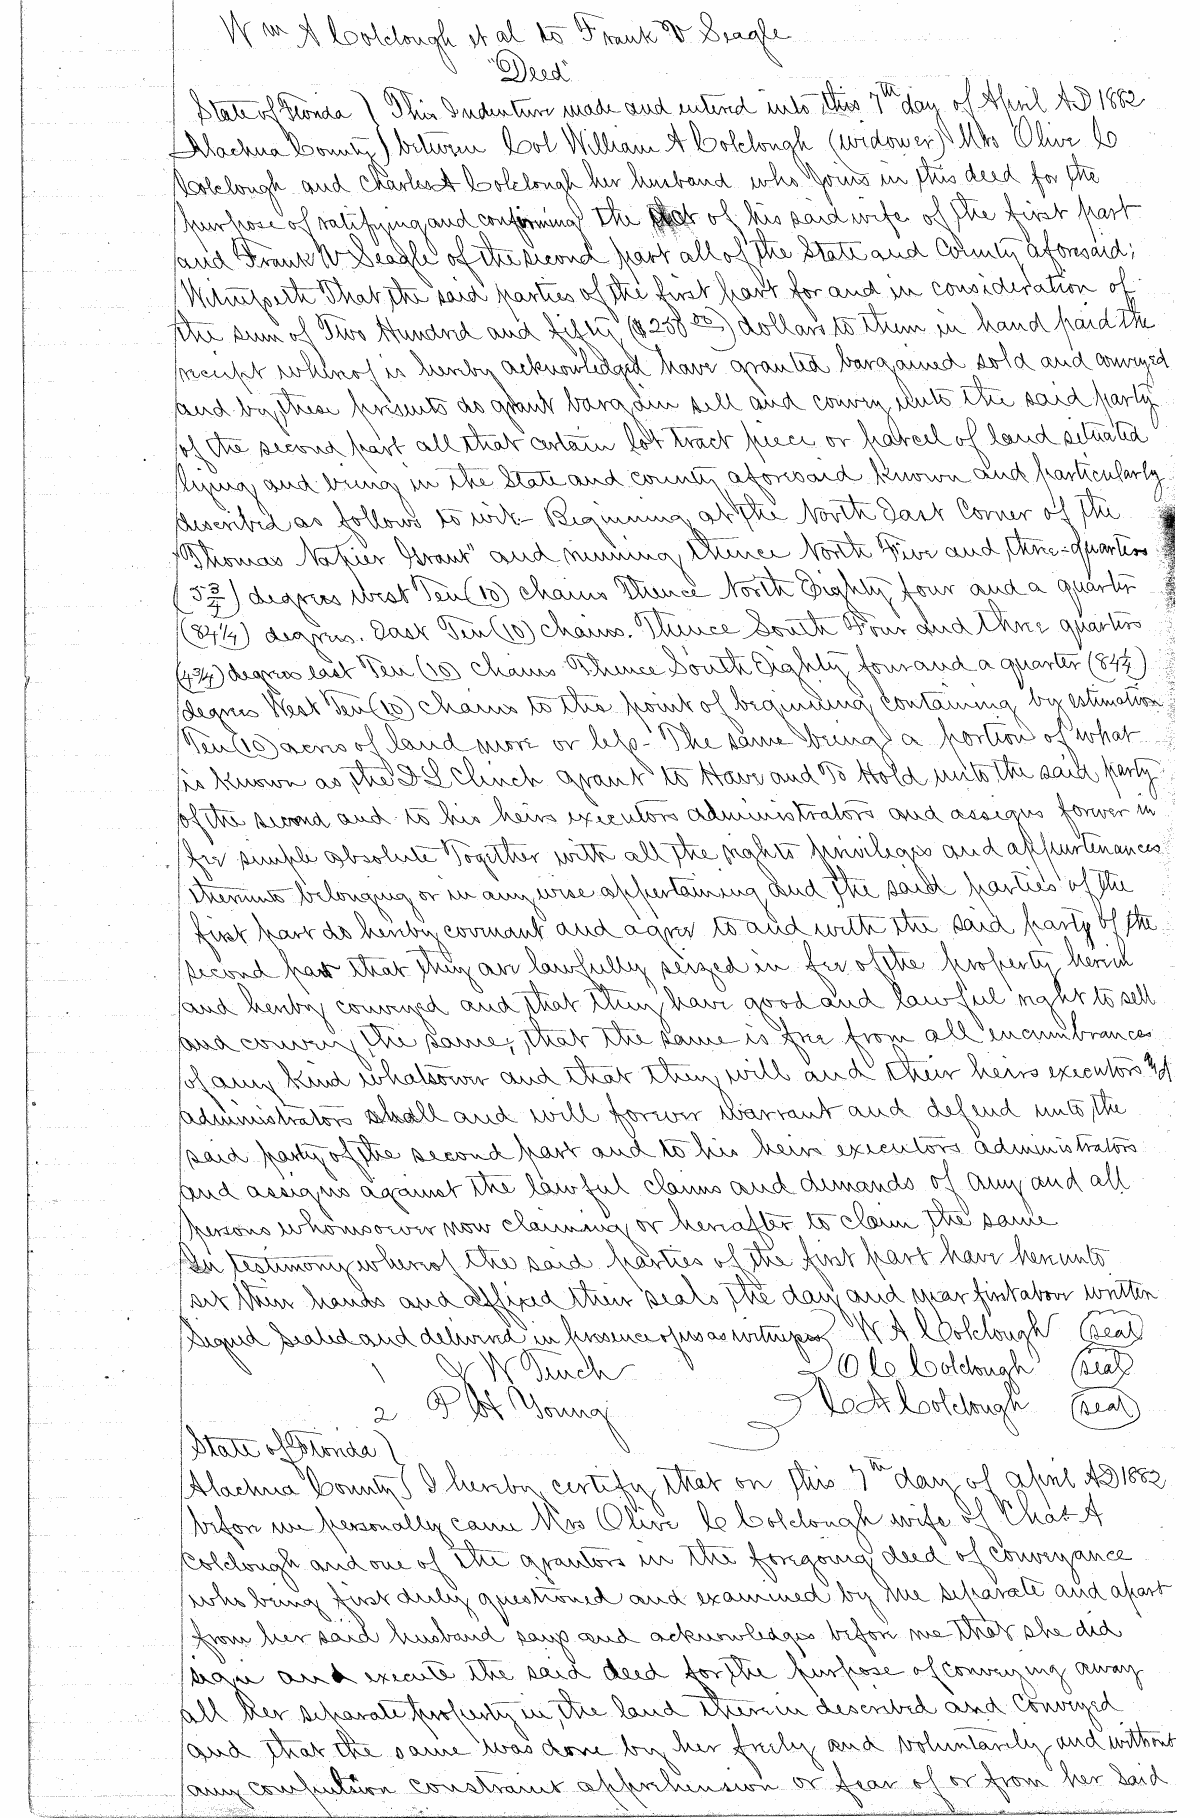 Wm A Colclough et al to Frank W Seagle
"Deed"
State of Florida ) This Indenture made and entered into this 7th day of April AD 1882
Alachua County ) between Col William A Colclough (widower) Mrs Olive C
Colclough and Charles A Colclough her husband who joins in this deed for the
purpose of ratifying and confirming the act of his said wife of the first part
and Frank W Seagle of the second part all of the State and County aforesaid;
Witnesseth That the said parties of the first part for and in consideration of
the sum of Two Hundred and fifty ($250 00) dollars to them in hand paid the
receipt whereof is hereby acknowledged have granted bargained sold and conveyed
and by these presents do grant bargain sell and convey unto the said party
of the second part all that certain lot tract piece or parcel of land situated
lying and being in the State and county aforesaid known and particularly
described as follows to wit- Beginning at the North East Corner of the
"Thomas Napier Grant" and running thence North Five and three-quarters
(5 3/4) degrees West Ten (10) chains Thence North Eighty four and a quarter
(84 1/4) degrees. East Ten (10) chains. Thence South Four and three quarters
(4 3/4) degrees east Ten (10) chains Thence South Eighty four and a quarter (84 1/4)
degrees West Ten (10) chains to the point of beginning containing by estimation
Ten (10) acres of land more or less- The same being a portion of what
is known as the D L Clinch grant to Have and To Hold unto the said party
of the second and to his heirs executors administrators and assigns forever in
fee simple absolute Together with all the rights privileges and appurtenances
thereunto belonging or in any wise appertaining and the said parties of the
first part do hereby covenant and agree to and with the said party of the
second part that they are lawfully seized in fee of the property herein
and hereby conveyed and that they have good and lawful right to sell
and convey the same, that the same is free from all encumbrances
of any kind whatsoever and that they will and their heirs executors and
administrators shall and will forever warrant and defend unto the
said party of the second part and to his heirs executors administrators
and assigns against the lawful claims and demands of any and all
persons whomsoever now claiming or hereafter to claim the same
In testimony whereof the said parties of the first part have hereunto
set their hands and affixed their seals the day and year first above written
Signed Sealed and delivered in presence of us as witnesses W A Colclough (seal)
1 J W Tench O C Colclough (seal)
2 P H Young C A Colclough (seal)
State of Florida )
Alachua County ) I hereby certify that on this 7th day of April AD 1882
before me personally came Mrs Olive C Colclough wife of Chas A
Colclough and one of the grantors in the foregoing deed of conveyance
who being first duly questioned and examined by me separate and apart
from her said husband says and acknowledges before me that she did
sign and execute the said deed for the purpose of conveying away
all her separate property in the land therein described and Conveyed
and that the same was done by her freely and voluntarily and without
any compulsion constraint apprehension or fear of or from her said